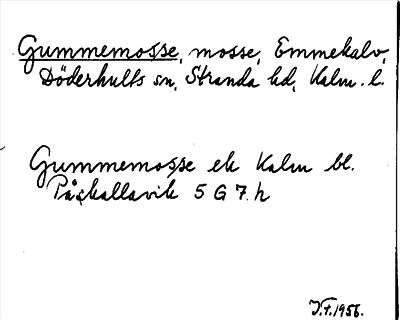 Gummemosse, mosse, Emmekalv,
Döderhults sn, Stranda hd, Kalm. l.
Gummemosse ek Kalm bl.
Påskallavik 5 G 7 h
V.t. 1956.